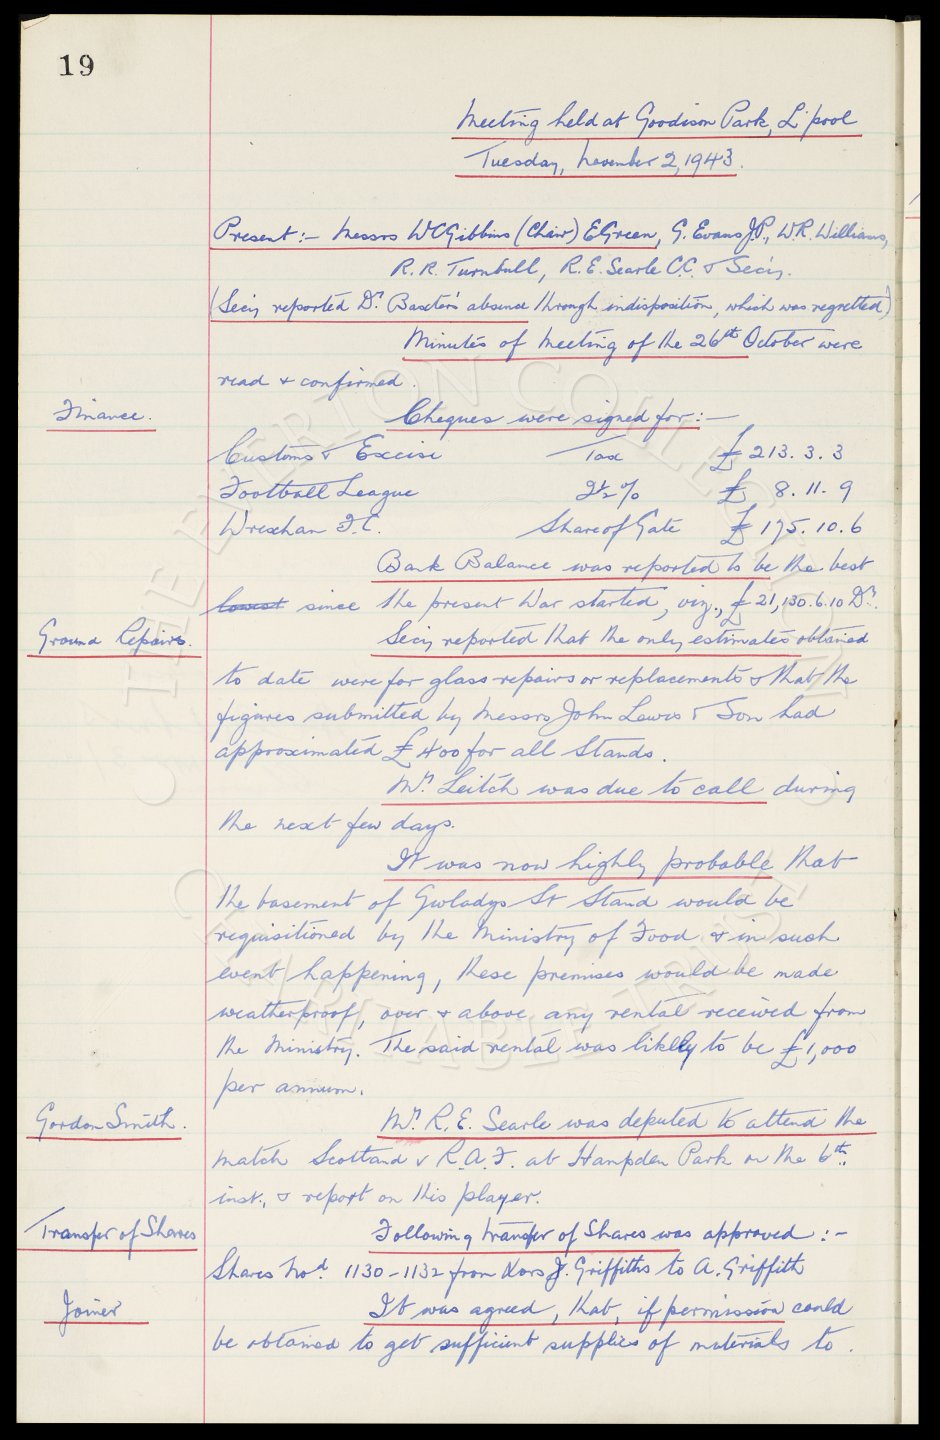 19
Meeting held at Goodison Park, L'pool
Tuesday, November 2, 1943.
Present:- Messrs W C Gibbins (Chair) E Green, G. Evans J.P., W.R. Williams,
R. R. Turnbull, R. E. Searle C.C. & Secy.
(Secy reported Dr. Baxter's absence through indisposition, which was regretted)
Minutes of Meeting of the 26th October were
read & confirmed.
Finance.
Cheques were signed for:-
Customs & Excise Tax £ 213. 3. 3
Football League 2½% £ 8. 11. 9
Wrexham F.C. Share of Gate £ 175. 10. 6
Bank Balance was reported to be the best
lowest since the present War started, viz., £21,130.6.10 Dr.
Ground Repairs.
Secy reported that the only estimates obtained
to date were for glass repairs or replacements & that the
figures submitted by Messrs John Lewis & Son had
approximated £400 for all Stands.
Mr. Leitch was due to call during
the next few days.
It was now highly probable that
the basement of Gwladys St Stand would be
requisitioned by the Ministry of Food & in such
event happening, these premises would be made
weatherproof, over & above any rental received from
the Ministry. The said rental was likely to be £1,000
per annum.
Gordon Smith.
Mr. R. E. Searle was deputed to attend the
match Scotland v R.A.F. at Hampden Park on the 6th
inst., & report on this player.
Transfer of Shares
Following transfer of Shares was approved:-
Shares Nod. 1130-1132 from Exors J. Griffiths to A. Griffith
Joiner
It was agreed, that, if permission could
be obtained to get sufficient supplies of materials to
THE EVERTON COLLECTION
CHARITABLE TRUST